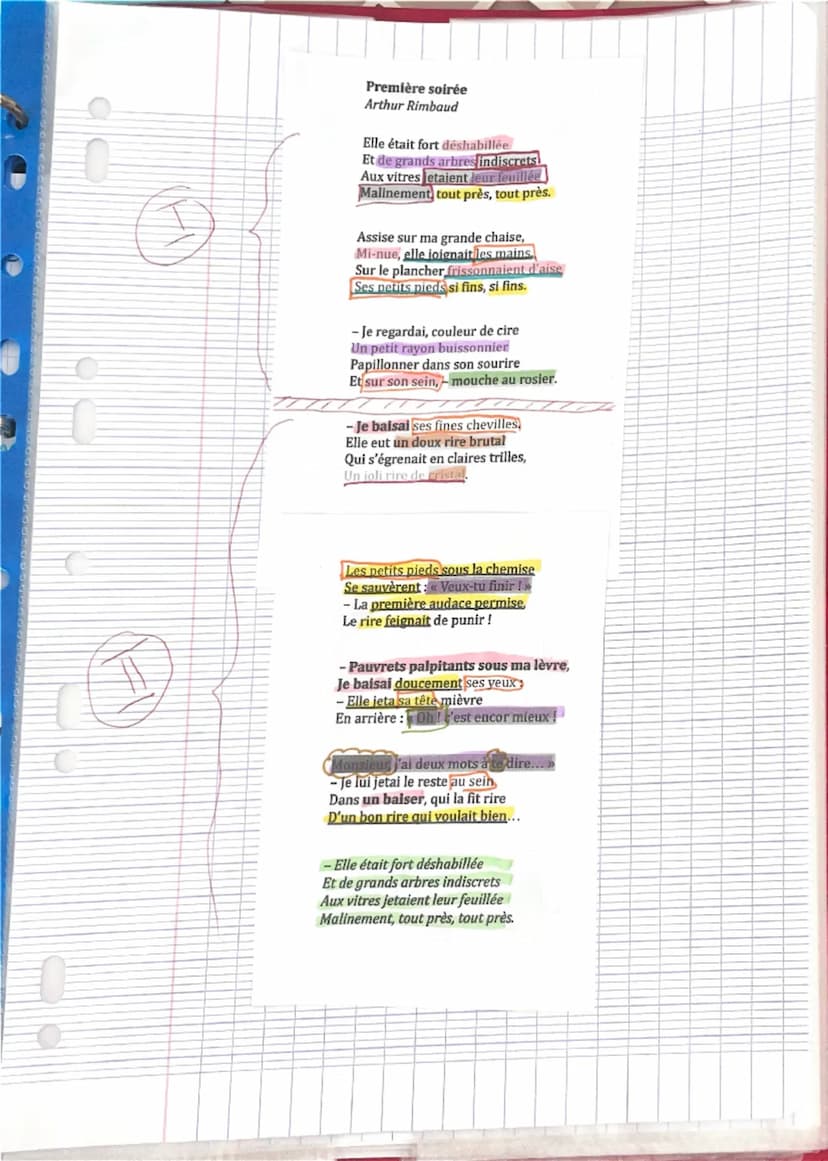 Première soirée
Arthur Rimbaud
Elle était fort déshabillée
Et de grands arbres indiscrets
Aux vitres jetaient leur feuillée
Malinement, tout près, tout près.
I
Assise sur ma grande chaise,
Mi-nue, elle joignait les mains.
Sur le plancher frissonnaient d'aise
Ses petits pieds si fins, si fins.
– Je regardai, couleur de cire
Un petit rayon buissonnier
Papillonner dans son sourire
Et sur son sein, – mouche au rosier.
– Je baisai ses fines chevilles.
Elle eut un doux rire brutal
Qui s'égrenait en claires trilles,
Un joli rire de cristal.
Les petits pieds sous la chemise
Se sauvèrent : « Veux-tu finir ! »
– La première audace permise,
Le rire feignait de punir !
II
– Pauvrets palpitants sous ma lèvre,
Je baisai doucement ses yeux :
– Elle jeta sa tête mièvre
En arrière : « Oh ! c'est encor mieux !
Monsieur, j'ai deux mots à te dire... »
– Je lui jetai le reste au sein
Dans un baiser, qui la fit rire
D'un bon rire qui voulait bien...
– Elle était fort déshabillée
Et de grands arbres indiscrets
Aux vitres jetaient leur feuillée
Malinement, tout près, tout près.